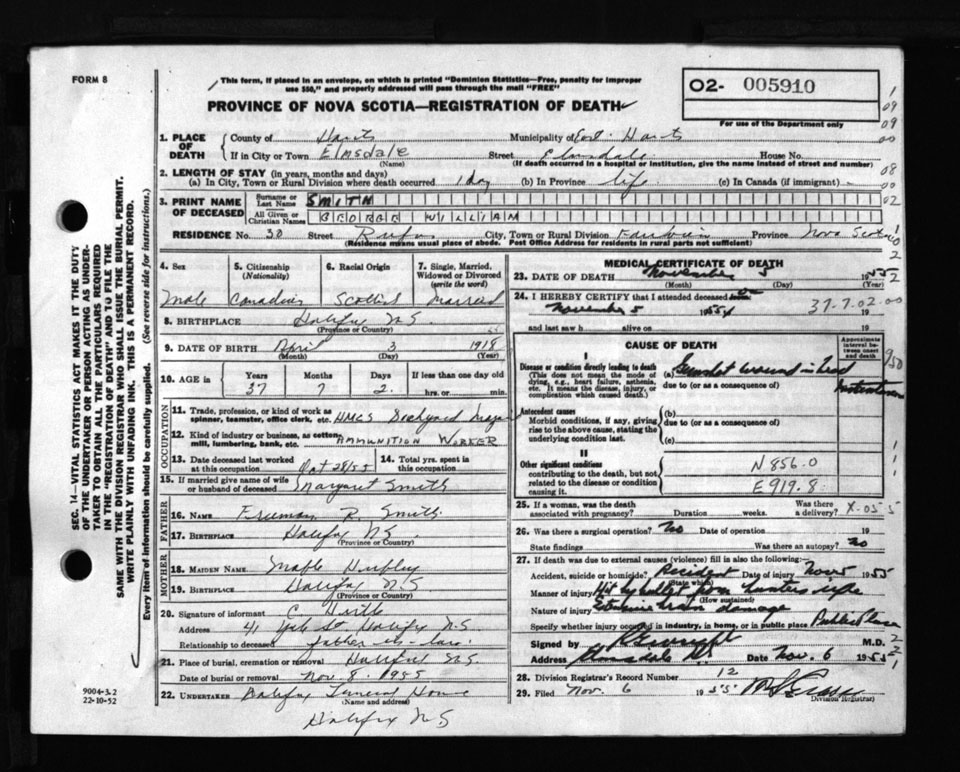 FORM 8
This form, if placed in an envelope, on which is printed "Dominion Statistics—Free, penalty for improper
use $50," and properly addressed will pass through the mail "FREE"
O2- 005910
For use of the Department only
PROVINCE OF NOVA SCOTIA—REGISTRATION OF DEATH
SEC. 14—VITAL STATISTICS ACT MAKES IT THE DUTY
OF THE UNDERTAKER OR PERSON ACTING AS UNDER-
TAKER TO OBTAIN ALL THE PARTICULARS REQUIRED
IN THE "REGISTRATION OF DEATH" AND TO FILE THE
SAME WITH THE DIVISION REGISTRAR WHO SHALL ISSUE THE BURIAL PERMIT.
WRITE PLAINLY WITH UNFADING INK. THIS IS A PERMANENT RECORD.
Every item of information should be carefully supplied. (See reverse side for instructions.)
1. PLACE OF DEATH County of Hants Municipality of East Hants
If in City or Town ELMSDALE Street Elmsdale House No.
(Name) (If death occurred in a hospital or institution, give the name instead of street and number)
2. LENGTH OF STAY (in years, months and days)
(a) In City, Town or Rural Division where death occurred 1 day (b) In Province life (c) In Canada (if immigrant) -
3. PRINT NAME OF DECEASED Surname or Last Name SMITH
All Given or Christian Names GEORGE WILLIAM
RESIDENCE No. 30 Street Rufus City, Town or Rural Division Fairview Province Nova Scotia
(Residence means usual place of abode. Post Office Address for residents in rural parts not sufficient)
4. Sex 5. Citizenship (Nationality) 6. Racial Origin 7. Single, Married, Widowed or Divorced (write the word)
Male Canadian Scottish Married
8. BIRTHPLACE Halifax N.S.
(Province or Country)
9. DATE OF BIRTH April 3 1918
(Month) (Day) (Year)
10. AGE in Years Months Days If less than one day
37 7 2 hrs. or min.
OCCUPATION
11. Trade, profession, or kind of work as spinner, teamster, office clerk, etc. HMCS Dockyard
12. Kind of industry or business, as cotton mill, lumbering, bank, etc. AMMUNITION WORKER
13. Date deceased last worked at this occupation Oct 28/55 14. Total yrs. spent in this occupation
15. If married give name of wife or husband of deceased Margaret Smith
FATHER
16. NAME Freeman R. Smith
17. BIRTHPLACE Halifax N.S.
(Province or Country)
MOTHER
18. MAIDEN NAME Mable Hubley
19. BIRTHPLACE Halifax N.S.
(Province or Country)
20. Signature of informant C. Hirtle
Address 41 St Halifax N.S.
Relationship to deceased father-in-law
21. Place of burial, cremation or removal Halifax N.S.
Date of burial or removal Nov. 8 1955
22. UNDERTAKER Halifax Funeral Home
(Name and address)
Halifax N.S
9004-3.2
22-10-52
MEDICAL CERTIFICATE OF DEATH
23. DATE OF DEATH November 5 1955
(Month) (Day) (Year)
24. I HEREBY CERTIFY that I attended deceased on
November 5 1955 19
and last saw h alive on 19
37-7-02-00
CAUSE OF DEATH
Approximate interval between onset and death
I
Disease or condition directly leading to death (a) Gunshot wound in head
(This does not mean the mode of dying, e.g., heart failure, asthenia, etc. It means the disease, injury, or complication which caused death.)
due to (or as a consequence of)
Antecedent causes
Morbid conditions, if any, giving rise to the above cause, stating the underlying condition last.
(b)
due to (or as a consequence of)
(c)
II
Other significant conditions
contributing to the death, but not related to the disease or condition causing it.
N 856.0
E 919.8
25. If a woman, was the death associated with pregnancy? Duration weeks. Was there a delivery?
X-05 5
26. Was there a surgical operation? No Date of operation 19
State findings Was there an autopsy? No
27. If death was due to external causes (violence) fill in also the following:
Accident, suicide or homicide? Accident Date of injury Nov 5 1955
(State which)
Manner of injury Hit by bullet from hunters rifle
(How sustained)
Nature of injury Extensive brain damage
Specify whether injury occurred in industry, in home, or in public place Public Place
Signed by M.D.
Address Elmsdale N.S. Date Nov. 6 1955
28. Division Registrar's Record Number 12
29. Filed Nov. 6 1955
Division Registrar)